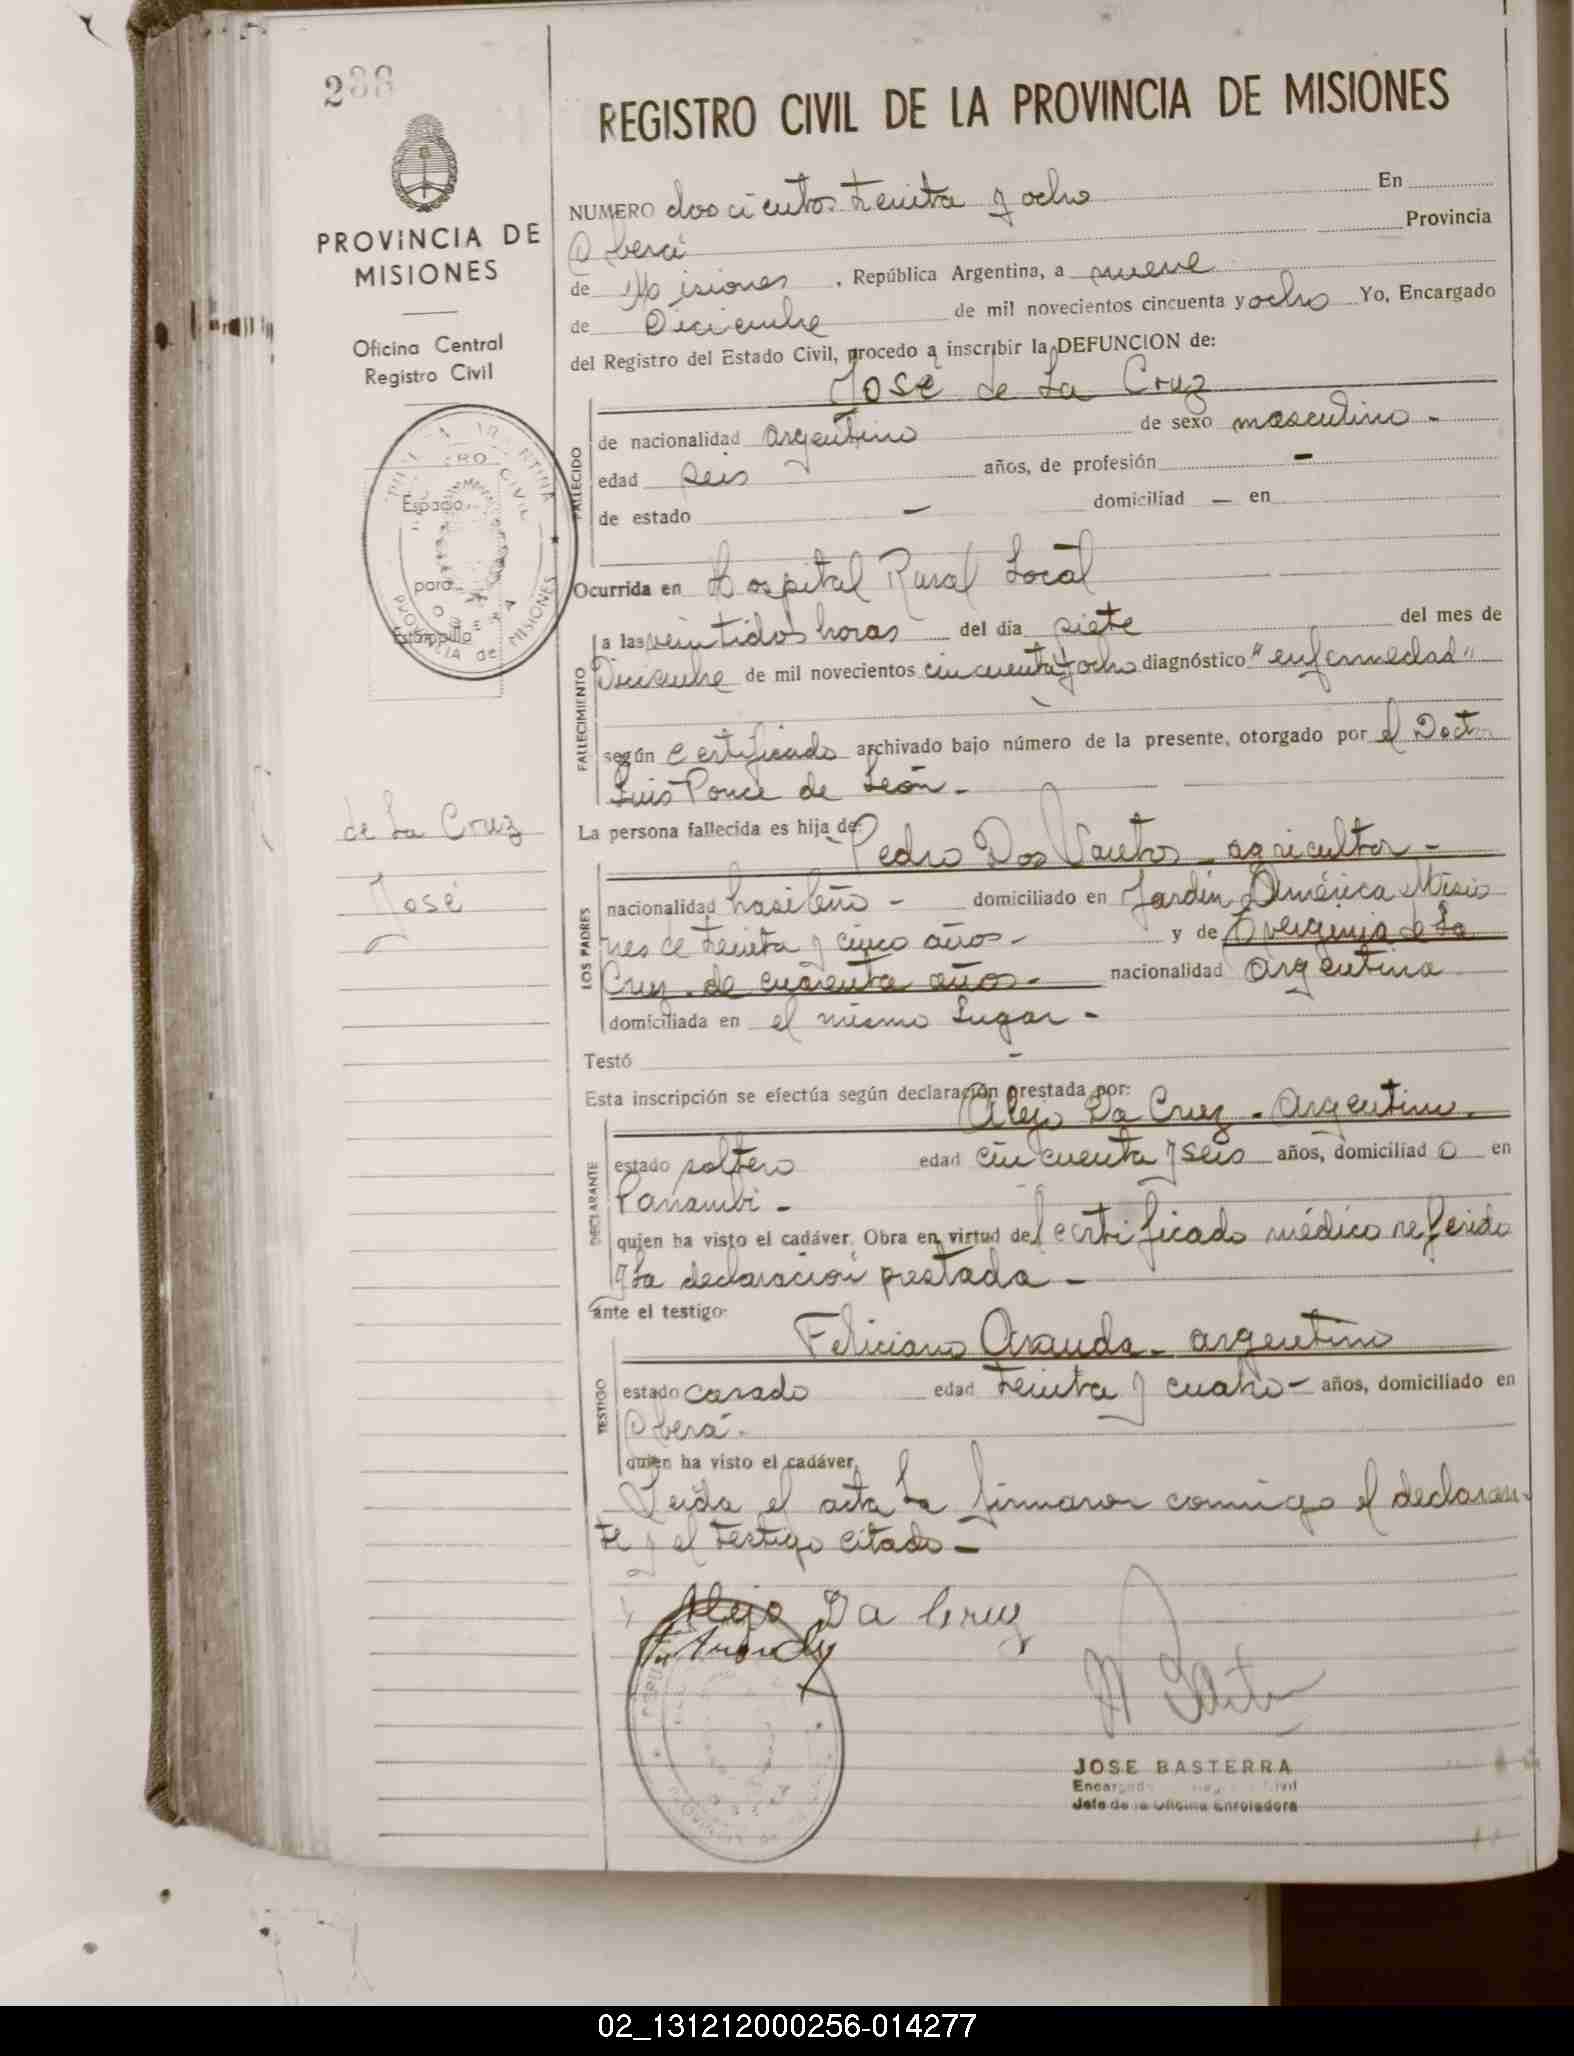 238
PROVINCIA DE
MISIONES
Oficina Central
Registro Civil
Espacio
para
Estampilla
de La Cruz
José
REGISTRO CIVIL DE LA PROVINCIA DE MISIONES
NUMERO doscientos treinta y ocho En
Oberá Provincia
de Misiones, República Argentina, a nueve
de Diciembre de mil novecientos cincuenta y ocho Yo, Encargado
del Registro del Estado Civil, procedo a inscribir la DEFUNCION de:
José de La Cruz
FALLECIDO
de nacionalidad argentino de sexo masculino -
edad seis años, de profesión -
de estado - domiciliad - en
Ocurrida en Hospital Rural Local
FALLECIMIENTO
a las veintidos horas del día siete del mes de
Diciembre de mil novecientos cincuenta y ocho diagnóstico "enfermedad"
según certificado archivado bajo número de la presente, otorgado por el Doctor
Luis Ponce de León -
La persona fallecida es hija de:
Pedro Dos Santos - agricultor -
LOS PADRES
nacionalidad brasileño - domiciliado en Jardín América Misio
nes de treinta y cinco años - y de Overginia de La
Cruz - de cuarenta años - nacionalidad argentina
domiciliada en el mismo lugar -
Testó -
Esta inscripción se efectúa según declaración prestada por:
Alejo Da Cruz - argentino -
DECLARANTE
estado soltero edad cincuenta y seis años, domiciliad o en
Panambí -
quien ha visto el cadáver. Obra en virtud del certificado médico referido
y la declaración prestada -
ante el testigo:
Feliciano Aranda - argentino
TESTIGO
estado casado edad treinta y cuatro - años, domiciliado en
Oberá -
quien ha visto el cadáver.
Leída el acta la firmaron conmigo el declaran-
te y el testigo citado -
Alejo Da Cruz
JOSE BASTERRA
Jefe de la Oficina Enroladora
02_131212000256-014277